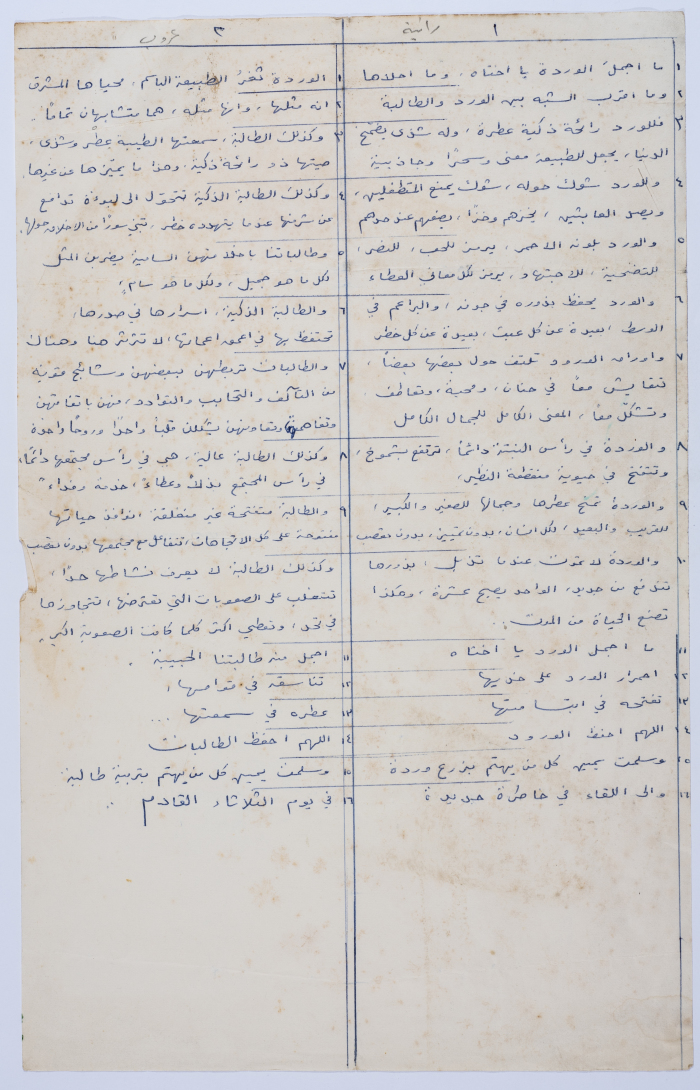 ١ رانية
١ ما اجمل الوردة يا اختاه، وما احلاها
٢ وما اقرب الشبه بين الورد والطالبة
٣ فللورد رائحة ذكية عطرة، وله شذى يضمخ
الدنيا، يجعل للطبيعة معنى وسحرًا وجاذبية
٤ وللورد شوك حوله، شوك يمنع المتطفلين،
ويصد العابثين، يخزهم وخزًا، يضعهم عند حدهم
٥ والورد بلونه الاحمر، يرمز للحب، للنصر،
للتضحية، للاجتهاد، يرمز لكل معاني العطاء
٦ والورد يحفظ بذوره في جوفه، والبراعم في
الوسط، بعيدة عن كل عبث، بعيدة عن كل خطر
٧ واوراق الورود تلتف حول بعضها بعضًا،
تتعايش معًا في حنان، ومحبة، وتعاطف
وتشكّل معًا، المعنى الكامل للجمال الكامل
٨ والوردة في رأس النبتة دائمًا، ترتفع بشموخ،
وتتفتح في حيوية منقطعة النظير
٩ والوردة تمنح عطرها وجمالها للصغير والكبير،
للقريب والبعيد، لكل انسان، بدون تمييز، بدون تعصب
١٠ والوردة لا تموت عندما تذبل، بذورها
تندفع من جديد، الواحد يصبح عشرة، وهكذا
تصنع الحياة من الموت..
١١ ما اجمل الورد يا اختاه
١٢ احمرار الورد على خديها
١٣ تفتحه في ابتسامتها
١٤ اللهم احفظ الورود
١٥ وسلمت يمين كل من يهتم بزرع وردة
١٦ والى اللقاء في خاطرة جديدة
٢ عروب
١ الوردة ثغرُ الطبيعة الباسم، محياها المشرق
٢ انه مثلها، وانها مثله، هما متشابهان تمامًا.
٣ وكذلك الطالبة، سمعتها الطيبة عطرٌ وشذى،
صيتها ذو رائحة ذكية، وهذا ما يميّزها عن غيرها
٤ وكذلك الطالبة الذكية تتحول الى لبوءة تدافع
عن شرفها عندما يتهدده خطر، تبني سورًا من الاخلاق حولها.
٥ وطالباتنا باخلاقهن السامية يضربن المثل
لكل ما هو جميل، ولكل ما هو سامٍ
٦ والطالبة الذكية، اسرارها في صدرها،
تحتفظ بها في اعمق اعماقها، لا تثرثر هنا وهناك
٧ والطالبات تربطهن ببعضهن وشائج قوية
من التآلف والتحابب والتوادد، فهن باتفاقهن
وتفاهمهن وتعاونهن يشكلن قلبًا واحدًا وروحًا واحدة
٨ وكذلك الطالبة عالية، هي في رأس مجتمعها دائمًا،
في رأس المجتمع بذلًا وعطاءً، خدمة وفداءً
٩ والطالبة متفتحة غير منغلقة، نوافذ حياتها
منفتحة على كل الاتجاهات، تتفاعل مع مجتمعها بدون تعصب
وكذلك الطالبة لا يعرف نشاطها حدًا،
تتغلب على الصعوبات التي تعترضها، تتجاوزها
في تحدٍ، وتعطي اكثر كلما كانت الصعوبة اكبر
١١ اجمل منه طالبتنا الحبيبة.
١٢ تناسقه في قوامها،
١٣ عطره في سمعتها ...
١٤ اللهم احفظ الطالبات
١٥ وسلمت يمين كل من يهتم بتربية طالبة
١٦ في يوم الثلاثاء القادم..